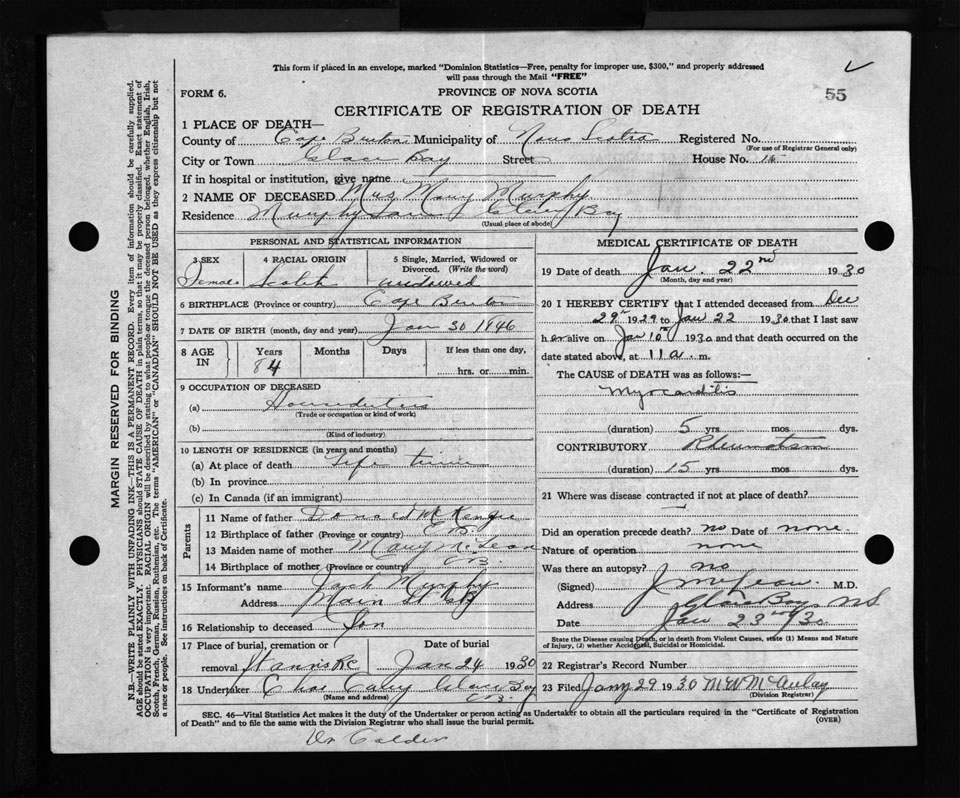 This form if placed in an envelope, marked "Dominion Statistics—Free, penalty for improper use, $300," and properly addressed
will pass through the Mail "FREE"
FORM 6.
PROVINCE OF NOVA SCOTIA
55
CERTIFICATE OF REGISTRATION OF DEATH
1 PLACE OF DEATH—
County of Cape Breton Municipality of Nova Scotia Registered No.
(For use of Registrar General only)
City or Town Glace Bay Street House No. 15
If in hospital or institution, give name
2 NAME OF DECEASED Mrs Mary Murphy
Residence Murphy Glace Bay
(Usual place of abode)
PERSONAL AND STATISTICAL INFORMATION
3 SEX 4 RACIAL ORIGIN 5 Single, Married, Widowed or Divorced. (Write the word)
Female Scotch widowed
6 BIRTHPLACE (Province or country) Cape Breton
7 DATE OF BIRTH (month, day and year) Jan 30 1846
8 AGE IN Years Months Days If less than one day,
84 hrs. or min.
9 OCCUPATION OF DECEASED
(a) Houseduties
(Trade or occupation or kind of work)
(b)
(Kind of industry)
10 LENGTH OF RESIDENCE (in years and months)
(a) At place of death Life time
(b) In province
(c) In Canada (if an immigrant)
Parents
11 Name of father Donald McKenzie
12 Birthplace of father (Province or country) C.B.
13 Maiden name of mother Mary McLean
14 Birthplace of mother (Province or country) C.B.
15 Informant's name Jack Murphy
Address Main St
16 Relationship to deceased Son
17 Place of burial, cremation or removal Date of burial
Jan 24 1930
18 Undertaker Chas Curry Glace Bay
(Name and address) C.B.
MEDICAL CERTIFICATE OF DEATH
19 Date of death Jan. 22nd 1930
(Month, day and year)
20 I HEREBY CERTIFY that I attended deceased from Dec
29th 1929 to Jan 22 1930 that I last saw
her alive on Jan 10th 1930 and that death occurred on the
date stated above, at 11 a. m.
The CAUSE OF DEATH was as follows:—
Myocarditis
(duration) 5 yrs. mos dys.
CONTRIBUTORY Rheumatism
(duration) 15 yrs mos dys.
21 Where was disease contracted if not at place of death?
Did an operation precede death? no Date of none
Nature of operation none
Was there an autopsy? no
(Signed) J McLean. M.D.
Address Glace Bay NS
Date Jan 23rd/30
State the Disease causing Death, or in death from Violent Causes, state (1) Means and Nature of Injury, (2) whether Accidental, Suicidal or Homicidal.
22 Registrar's Record Number
23 Filed Jany 29 1930 M W McAulay
(Division Registrar)
SEC. 46—Vital Statistics Act makes it the duty of the Undertaker or person acting as Undertaker to obtain all the particulars required in the "Certificate of Registration
of Death" and to file the same with the Division Registrar who shall issue the burial permit.
(OVER)
Dr Calder
MARGIN RESERVED FOR BINDING
N.B.—WRITE PLAINLY WITH UNFADING INK—THIS IS A PERMANENT RECORD. Every item of information should be carefully supplied.
AGE should be stated EXACTLY. PHYSICIANS should STATE CAUSE OF DEATH in plain terms, so that it may be properly classified. Exact statement of
OCCUPATION is very important. RACIAL ORIGIN will be described by stating to what people or tongue the deceased person belonged, whether English, Irish,
Scotch, French, German, Russian, Ruthenian, etc. The terms "AMERICAN" or "CANADIAN" SHOULD NOT BE USED as they express citizenship but not
a race or people. See instructions on back of Certificate.